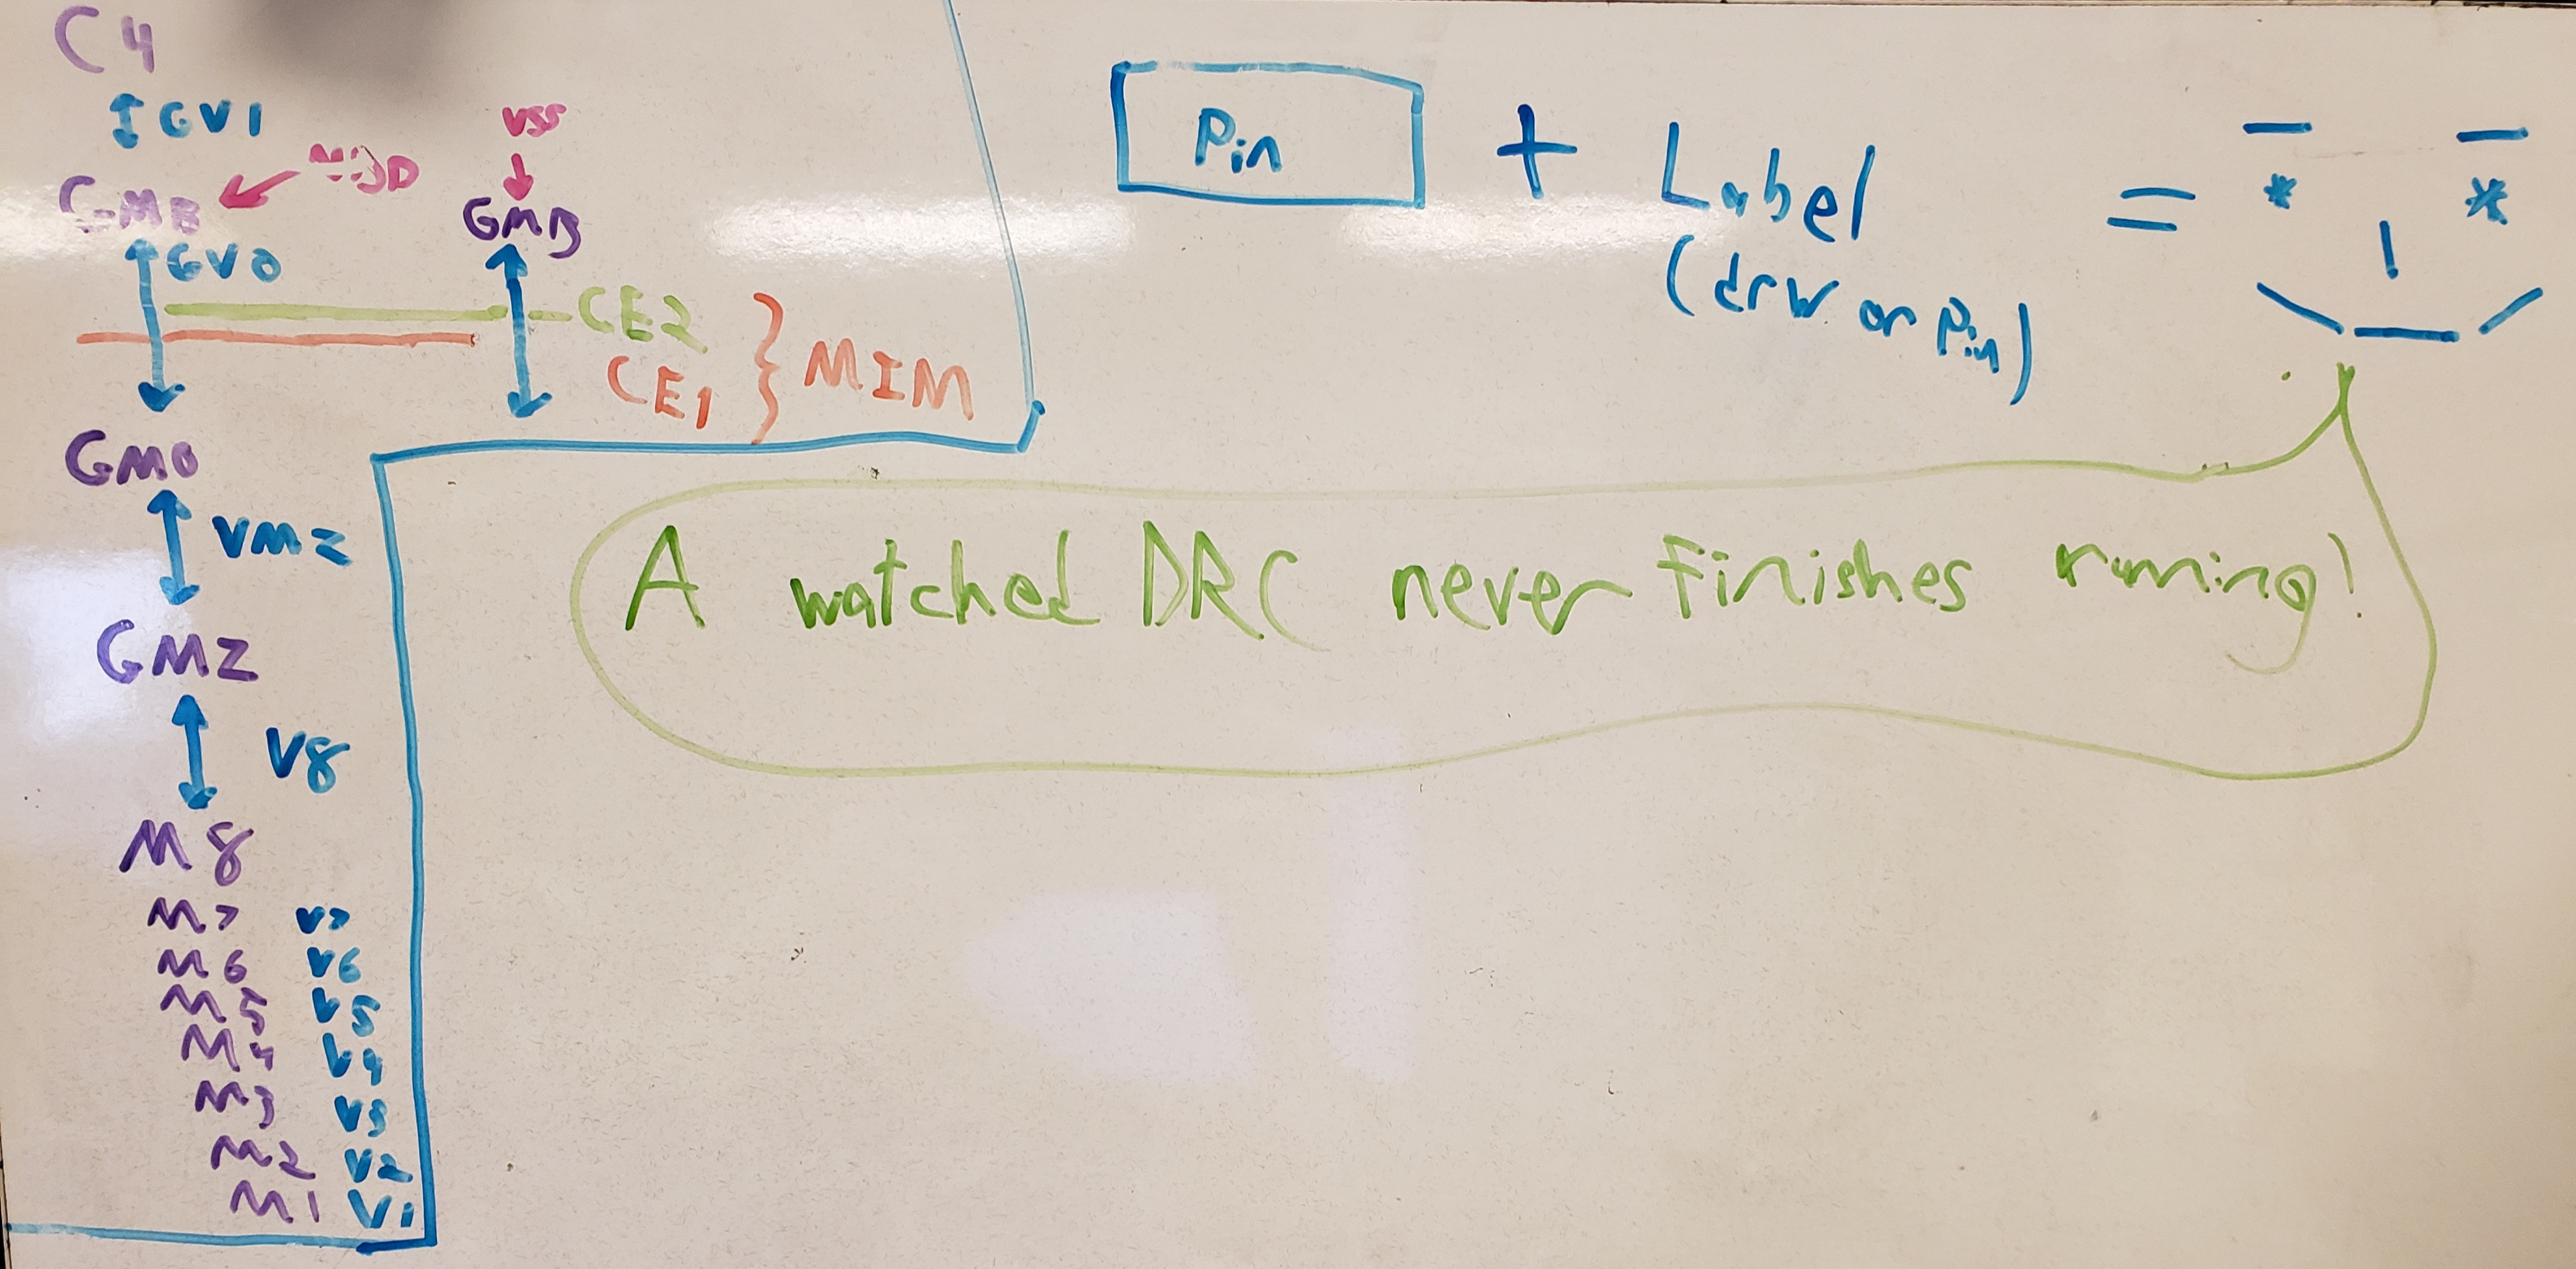 C4
GV1
VSS
GMB
GMB
GV0
CE2
CE1
MIM
GM0
VMZ
GMZ
V8
M8
M7 V7
M6 V6
M5 V5
M4 V4
M3 V3
M2 V2
M1 V1
Pin + Label =
(drw on pin)
A watched DRC never finishes running!